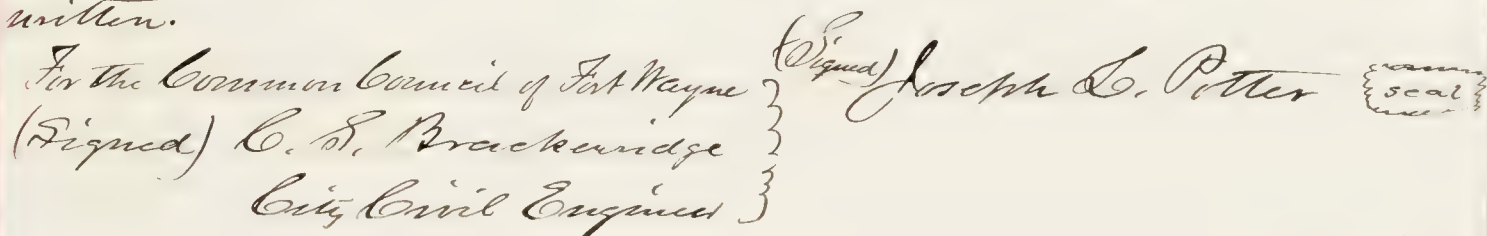 written.
For the Common Council of Fort Wayne
(Signed) C. S. Brackenridge
City Civil Engineer
(Signed) Joseph L. Potter
seal